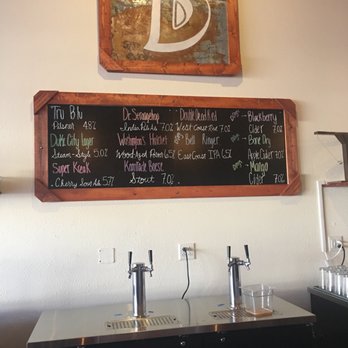 Tru Blu
Pilsner 4.8%
Dutte City Lager
Steam-Style 5.0%
Super Kreak
Cherry Sour Ale 5.7%
Dr.
India Pale 7.0%
Wood Aged Porter 6.5%
Stout 7.0%
Double Dead Red
West Coast Red 7.0%
Bell Ringer
East Coast IPA 6.5%
Blackberry
Cider 7.0%
Bone Dry
Apple Cider 7.0%
Mango
Cider 7.0%